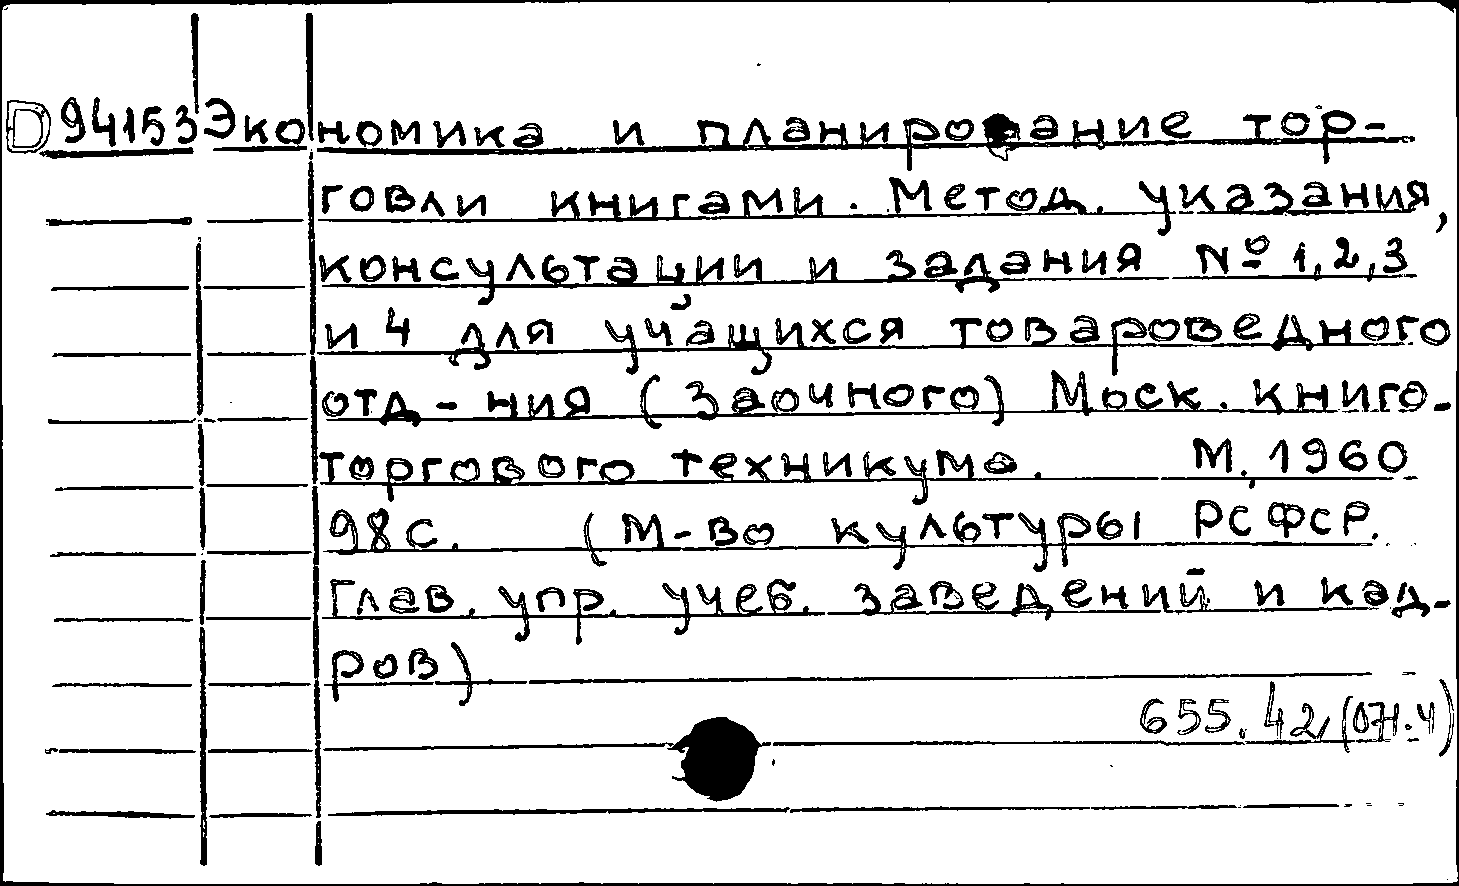 D 94153 Экономика и планирование тор-
говли книгами. Метод. указания,
консультации и задания № 1, 2, 3
и 4 для учащихся товароведного
отд-ния (Заочного) Моск. книго-
торгового техникума. М., 1960
98 с. (М-во культуры РСФСР.
Глав. упр. учеб. заведений и кад-
ров)
655.42 (071.4)